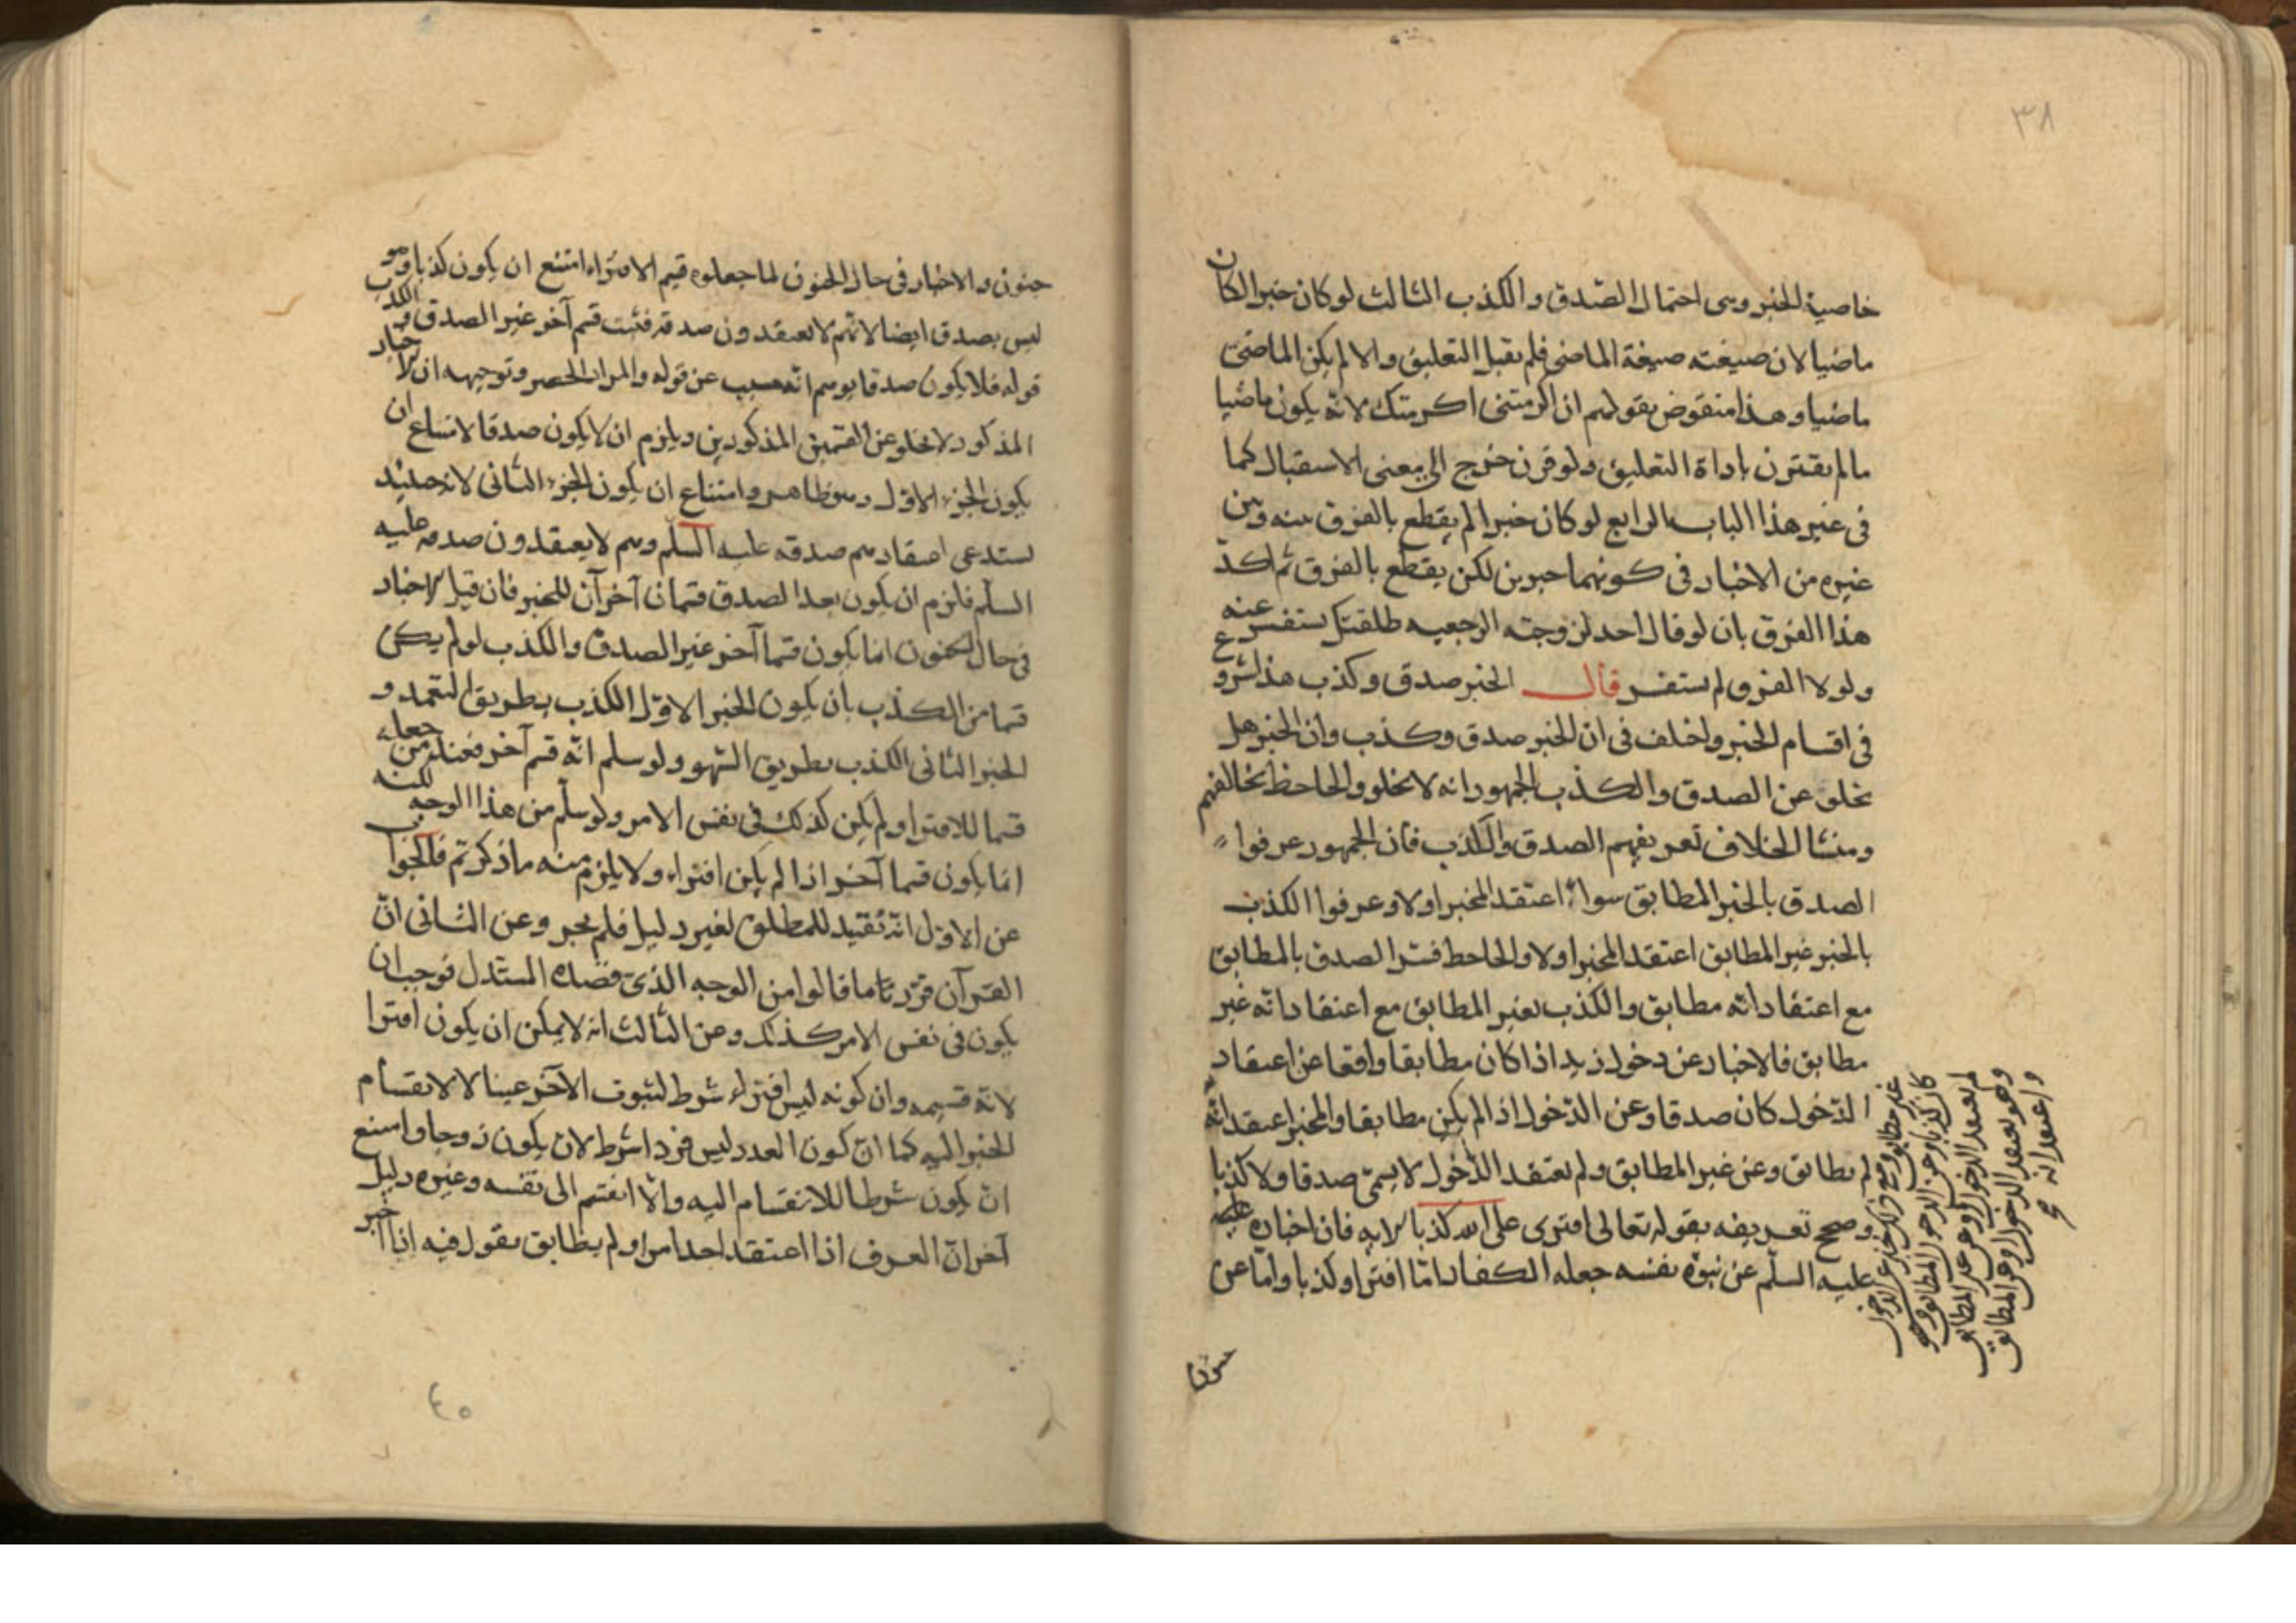 ٣٨
خاصية الخبر وهى احتمال الصّدق والكذب الثالث لو كان خبرا لكان
ماضيا لان صيغته صيغة الماضى فلم يقبل التعليق والا لم يكن الماضى
ماضيا وهذا منقوض بقولهم ان اكرمتنى اكرمتك لانّه يكون ماضيا
مالم يقترن باداة التعليق ولو قرن خرج الى معنى الاستقبال كما
فى غير هذا الباب الرابع لو كان خبرا لم يقطع بالفرق بينه وبين
غيره من الاخبار فى كونهما خبرين لكن يقطع بالفرق ثم اكدّ
هذا الفرق بان لو قال احد لزوجته الرجعيه طلقتك يستفسر عنه
ولولا الفرق لم يستفسر قال الخبر صدق وكذب هذا شروع
فى اقسام الخبر واختلف فى ان الخبر صدق وكذب وان الخبر هل
يخلو عن الصدق والكذب الجمهور انه لا يخلو والجاحظ يخالفهم
ومنشا الخلاف تعريفهم الصدق والكذب فان الجمهور عرفوا
الصدق بالخبر المطابق سواء اعتقد المخبر اولا وعرفوا الكذب
بالخبر غير المطابق اعتقد المخبر اولا والجاحظ فسّر الصدق بالمطابق
مع اعتقاد انّه مطابق والكذب بغير المطابق مع اعتقاد انّه غير
مطابق فالاخبار عن دخول زيد اذا كان مطابقا واقعا عن اعتقاد
الدّخول كان صدقا وعن الدّخول اذ الم يكن مطابقا والمخبر اعتقد انّه
لم يطابق وعن غير المطابق ولم يعتقد الدّخول لا يسمّى صدقا ولا كذبا
وصحح تعريفه بقوله تعالى افترى على الله كذبا الايه فان اخباره
عليه السلّم عن نبوّة نفسه جعله الكفار امّا افترا وكذبا وامّا عن
غير مطابق
كان كذبا وعن الدخول المطابق وهو
لم يعتقد الدخول او عن غير المطابق
وهو يعتقد الدخول او عن المطابق
واعتقد انه
جنون
جنون والاخبار فى حال الجنون لما جعلوه قسيم الافتراء امتنع ان يكون كذبا وهو
ليس بصدق ايضا لانّهم لا يعتقدون صدقه فثبت قسم آخر غير الصدق والكذب
قوله فلا يكون صدقا يوهم انّه مسبب عن قوله والمراد الحصر وتوجيهه ان الاخبار
المذكور لا يخلو عن القسمين المذكورين ويلزم ان لا يكون صدقا لامتناع ان
يكون الجزء الاوّل وهو ظاهر وامتناع ان يكون الجزء الثانى لانه حينئذ
يستدعى اعتقادهم صدقه عليه السلّم وهم لا يعتقدون صدقه عليه
السلّم فلزم ان يكون بعد الصدق قسمان آخران للخبر فان قيل الاخبار
فى حال الجنون انما يكون قسما آخر غير الصدق والكذب لو لم يكن
قسما من الكذب بان يكون الخبر الاوّل الكذب بطريق التعمد و
الخبر الثانى الكذب بطريق السّهو ولو سلم انّه قسم آخر فعندهم من جعله
قسما للافترا ولم يكن كذلك فى نفس الامر ولو سلّم من هذا الوجه لكنه
انما يكون قسما آخر اذا لم يكن افتراء ولا يلزم منه ما ذكرتم فالجواب
عن الاوّل انّه تقييد للمطلق لغير دليل فلم يجز وعن الثانى انّ
القرآن قرّر تاما قالوا من الوجه الذى قصده المستدل فوجب ان
يكون فى نفس الامر كذلك وعن الثالث انه لا يمكن ان يكون افترا
لانّه قسيمه وان كونه ليس افتراء شرط لثبوت الآخر عينا لا لانقسام
الخبر اليه كما انّ كون العدد ليس فردا شرط لان يكون زوجا وامتنع
ان يكون شرطا للانقسام اليه والّا انقسم الى نفسه وغيره دليل
آخر انّ العرف اذا اعتقد احد امرا ولم يطابق يقول فيه انا اخبر
٤٥